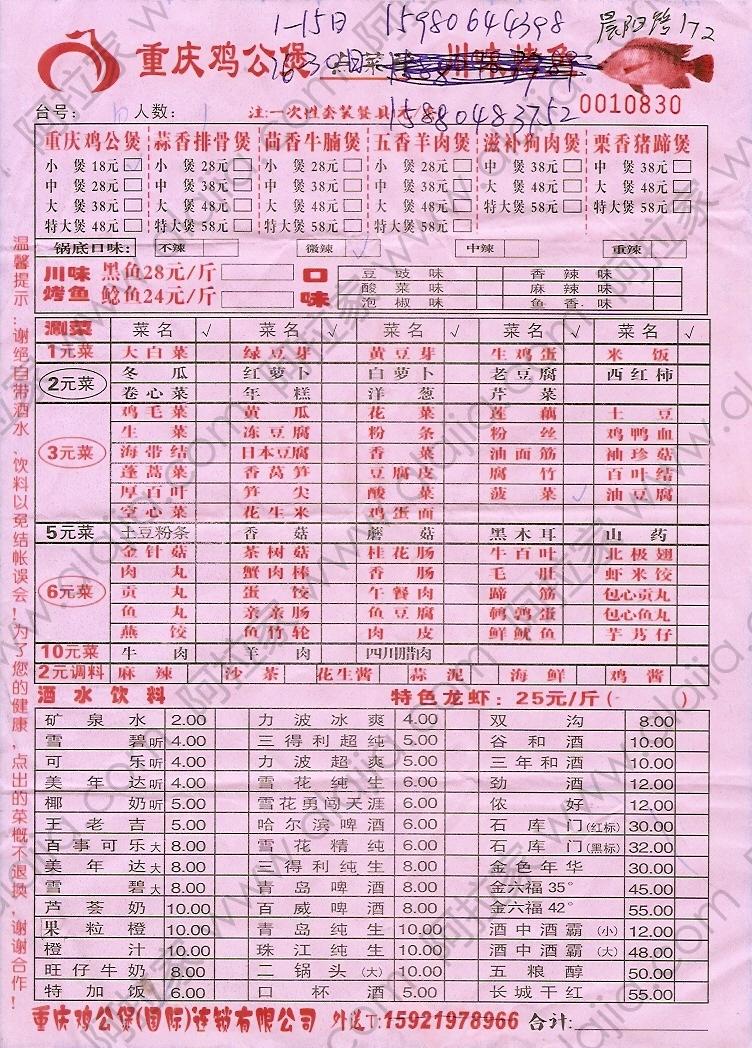 1-15日 15980644398 晨阳路172
重庆鸡公煲
16-30日 15880483752
台号: 人数: 注:一次性套装餐具1元 0010830
重庆鸡公煲 蒜香排骨煲 茴香牛腩煲 五香羊肉煲 滋补狗肉煲 栗香猪蹄煲
小 煲 18元 小 煲 28元 小 煲 28元 小 煲 28元 中 煲 38元 中 煲 38元
中 煲 28元 中 煲 38元 中 煲 38元 中 煲 38元 大 煲 48元 大 煲 48元
大 煲 38元 大 煲 48元 大 煲 48元 大 煲 48元 特大煲 58元 特大煲 58元
特大煲 48元 特大煲 58元 特大煲 58元 特大煲 58元
锅底口味: 不辣 微辣 √ 中辣 重辣
川味 黑鱼28元/斤 口 豆豉味 香辣味
烤鱼 鲶鱼24元/斤 味 酸菜味 麻辣味
泡椒味 鱼香味
涮菜 菜名 √ 菜名 √ 菜名 √ 菜名 √ 菜名 √
1元菜 大白菜 绿豆芽 黄豆芽 生鸡蛋 米饭
2元菜 冬瓜 红萝卜 白萝卜 老豆腐 西红柿
卷心菜 年糕 洋葱 芹菜
3元菜 鸡毛菜 黄瓜 花菜 莲藕 土豆
生菜 冻豆腐 粉条 粉丝 鸡鸭血
海带结 日本豆腐 香菜 油面筋 袖珍菇
蓬蒿菜 香莴笋 豆腐皮 腐竹 百叶结
厚百叶 笋尖 酸菜 菠菜 √ 油豆腐
空心菜 花生米 鸡蛋面
5元菜 土豆粉条 香菇 蘑菇 黑木耳 山药
6元菜 金针菇 茶树菇 桂花肠 牛百叶 北极翅
肉丸 蟹肉棒 香肠 毛肚 虾米饺
贡丸 蛋饺 午餐肉 蹄筋 包心贡丸
鱼丸 亲亲肠 鱼豆腐 鹌鹑蛋 包心鱼丸
燕饺 鱼竹轮 肉皮 鲜鱿鱼 芋艿仔
10元菜 牛肉 羊肉 四川腊肉
2元调料 麻辣 沙茶 花生酱 蒜泥 海鲜 鸡酱
酒水饮料 特色龙虾:25元/斤( )
矿泉水 2.00 力波冰爽 4.00 双沟 8.00
雪碧听 4.00 三得利超纯 5.00 谷和酒 10.00
可乐听 4.00 力波超爽 5.00 三年和酒 10.00
美年达听 4.00 雪花纯生 6.00 劲酒 12.00
椰奶听 5.00 雪花勇闯天涯 6.00 侬好 12.00
王老吉 5.00 哈尔滨啤酒 6.00 石库门(红标) 30.00
百事可乐大 8.00 雪花精纯 6.00 石库门(黑标) 32.00
美年达大 8.00 三得利纯生 8.00 金色年华 30.00
雪碧大 8.00 青岛啤酒 8.00 金六福35° 45.00
芦荟奶 10.00 百威啤酒 8.00 金六福42° 55.00
果粒橙 10.00 青岛纯生 10.00 酒中酒霸(小) 12.00
橙汁 10.00 珠江纯生 10.00 酒中酒霸(大) 48.00
旺仔牛奶 8.00 二锅头(大) 10.00 五粮醇 50.00
特加饭 6.00 口杯酒 5.00 长城干红 55.00
重庆鸡公煲(国际)连锁有限公司 外送T:15921978966 合计:
温馨提示:谢绝自带酒水、饮料以免结帐误会!为了您的健康,点出的菜概不退换,谢谢合作!
阿拉家 www.alajia.com